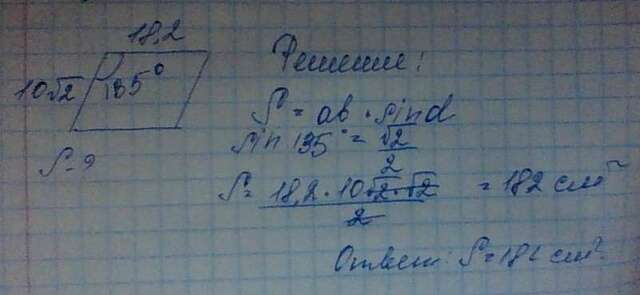 18,2
10√2 135°
S-?
Решение:
S = ab · sin α
sin 135° = √2/2
S = 18,2 · 10√2 · √2 / 2 = 182 см²
Ответ: S = 182 см²